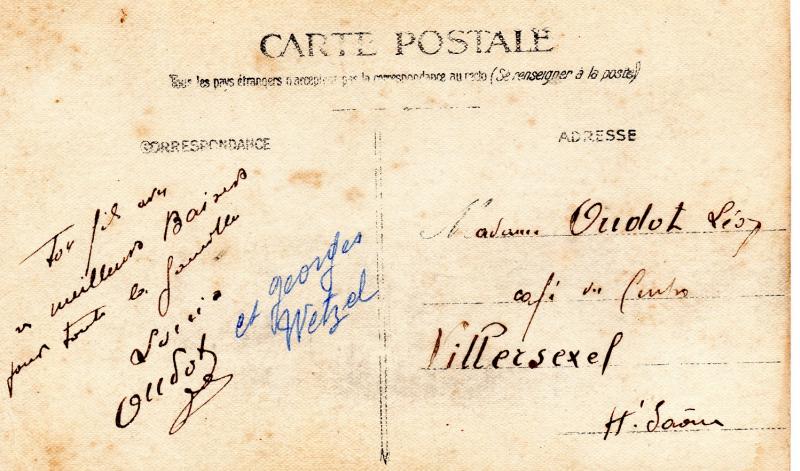 CARTE POSTALE
Tous les pays étrangers n'acceptent pas la correspondance au recto (Se renseigner à la poste)
CORRESPONDANCE
Ton fils avec
meilleurs Baisers
pour toute la famille
Louis
Oudot
et georges
Wetzel
ADRESSE
Madame Oudot Léon
café du Centre
Villersexel
Hte Saône